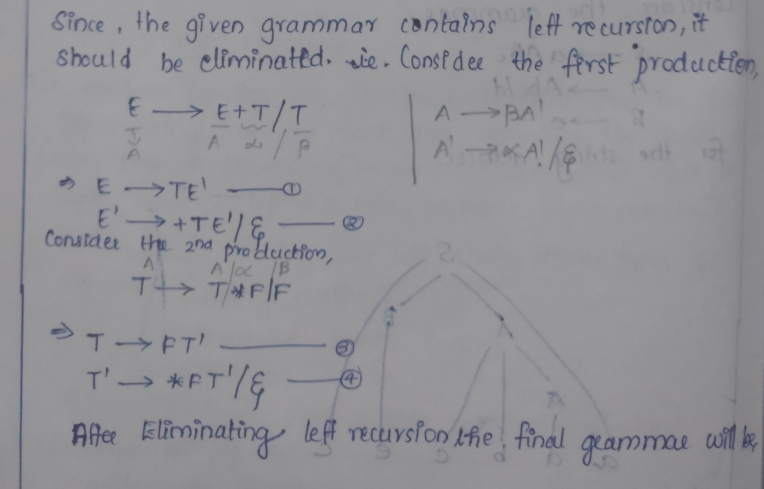 Since, the given grammar contains left recursion, it
should be eliminated. ie. Consider the first production,
E → E+T/T
A α β
A → βA'
A' → αA'/ε
⇒ E → TE' ①
E' → +TE'/ε ②
Consider the 2nd production,
A A/α /B
T → T/*F/F
⇒ T → FT' ③
T' → *FT'/ε ④
After Eliminating left recursion the final grammar will be,